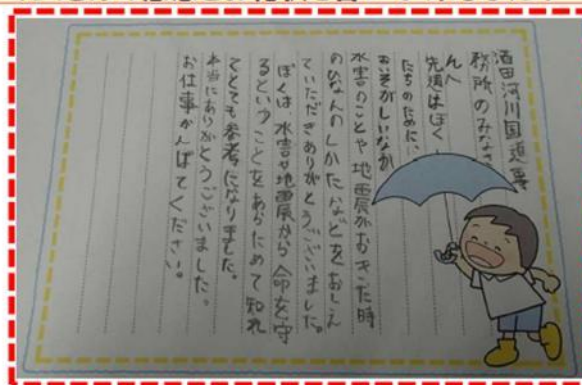 酒田河川国道事
務所のみなさ
んへ
先週はぼく
たちのために、
おいそがしいなか
水害のことや地震がおきた時
のひなんのしかたなどをおしえ
ていただきありがとうございました。
ぼくは、水害や地震から命を守
るということをあらためて知れ
てとても参考になりました。
本当にありがとうございました。
お仕事がんばてください。